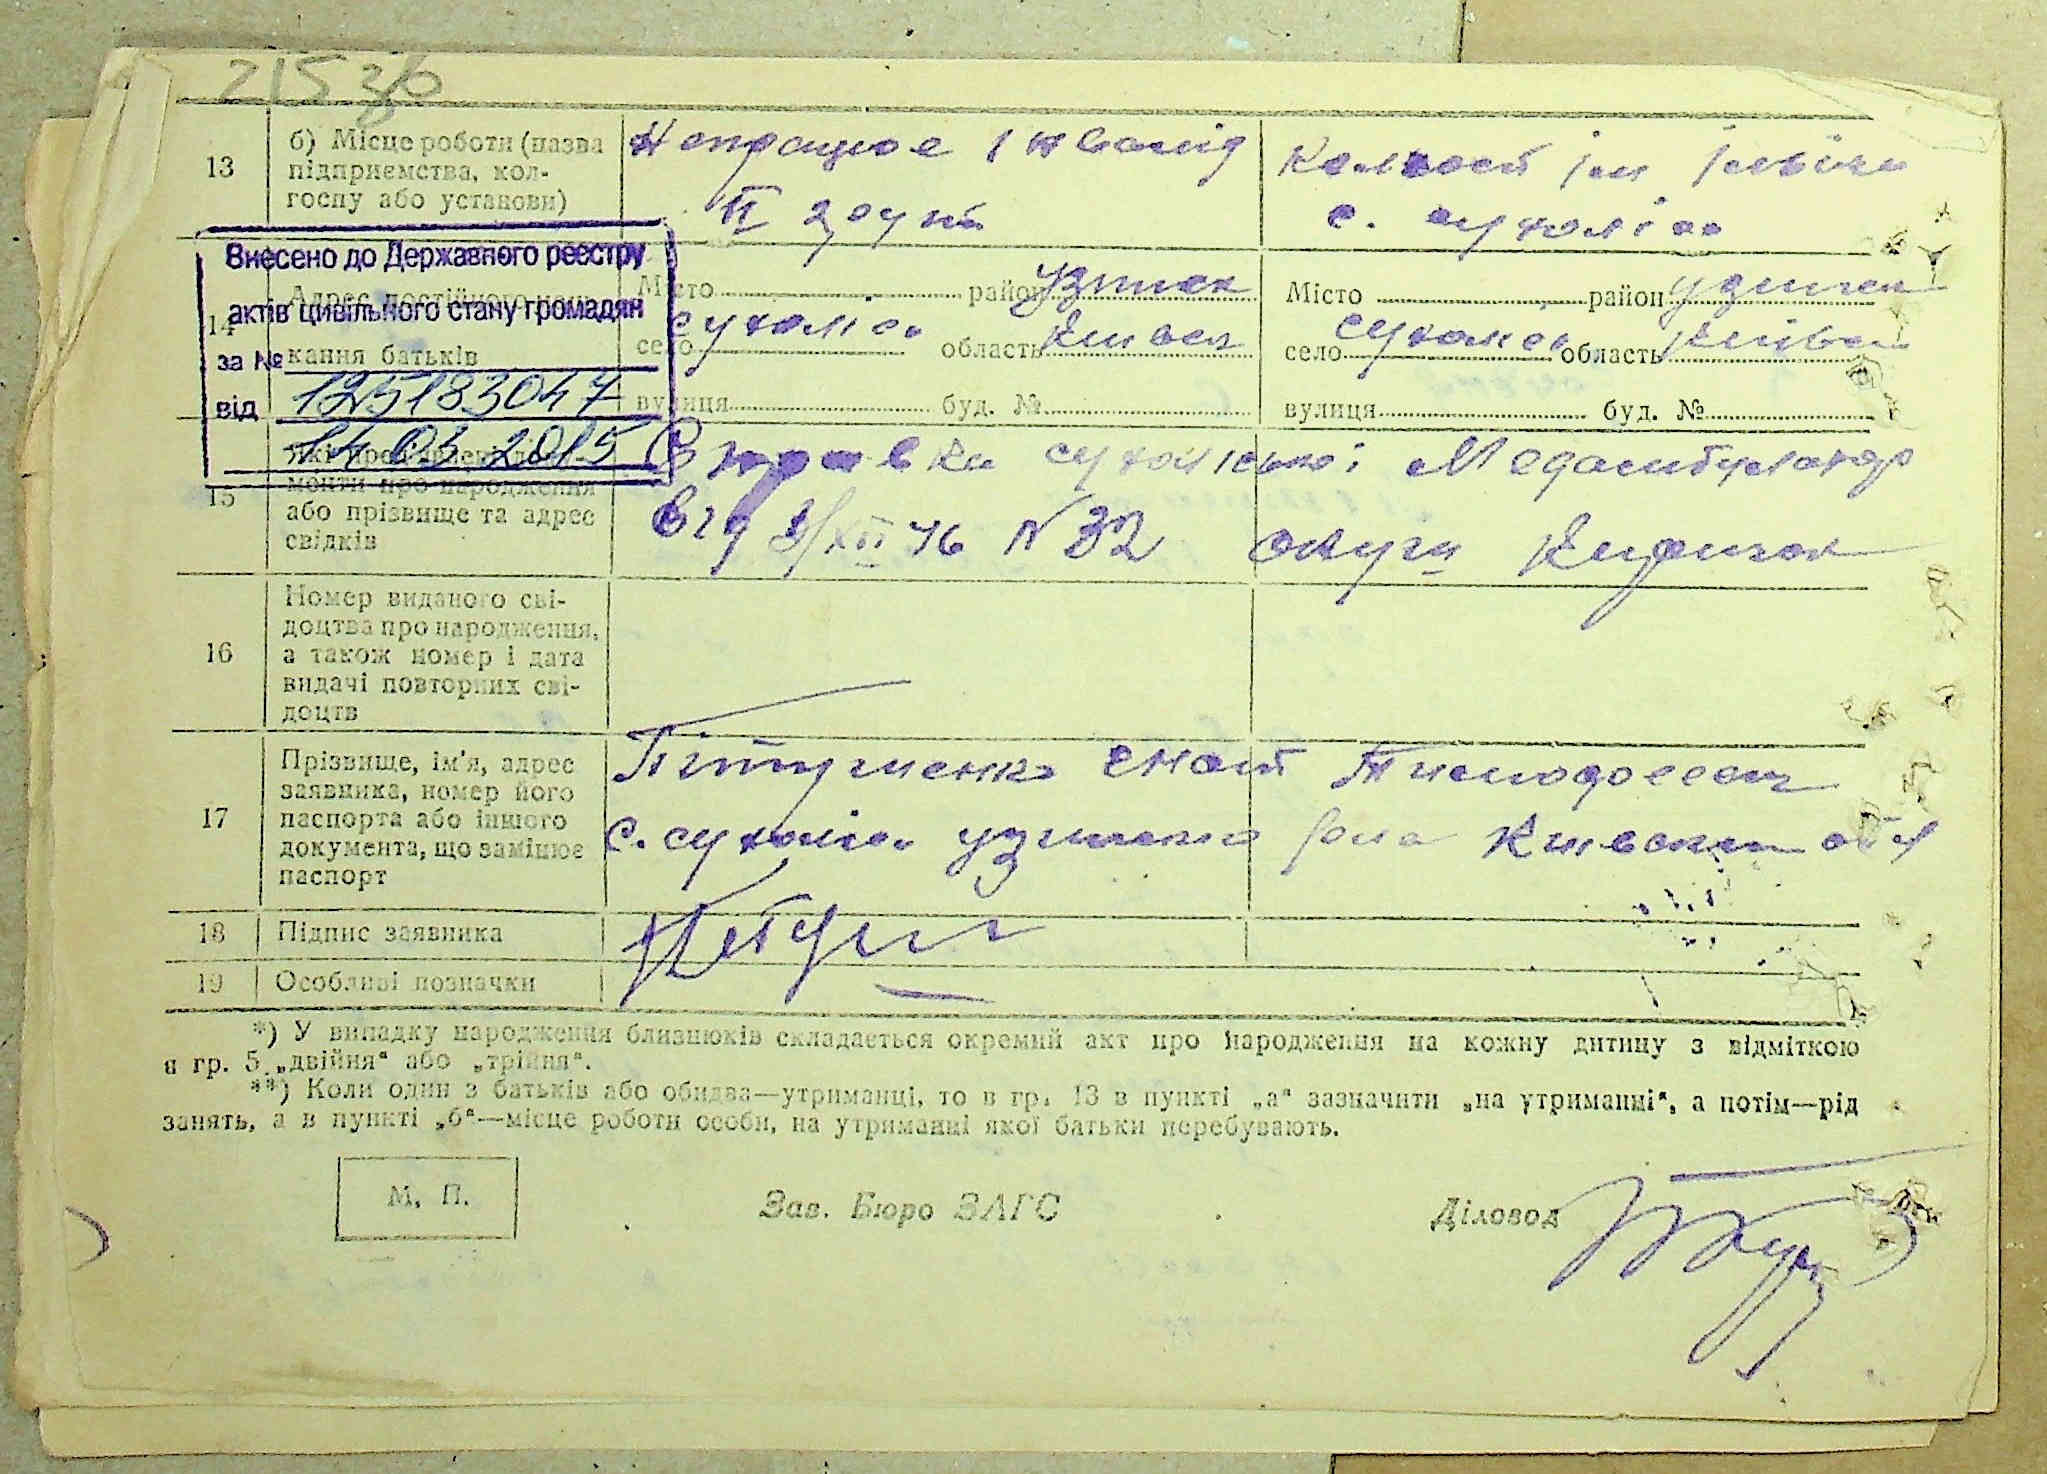 215зв
13
б) Місце роботи (назва
підприємства, кол-
госпу або установи)
Непрацює інвалід
II груп
Колгосп ім
с. сухоліси
Внесено до Державного реєстру
актів цивільного стану громадян
за № 125183047
від 14 03 2015
14
Адрес постійного
кання батьків
Місто район Узинск
село Сухоліси область Київск
вулиця буд. №
Місто район Узинск
село Сухоліси область Київск
вулиця буд. №
15
менти про народження
або прізвище та адрес
свідків
Справка сухоліської Медамбулатор
Від 3/XII 46 N 32
16
Номер виданого сві-
доцтва про народження,
а також номер і дата
видачі повторних сві-
доцтв
17
Прізвище, ім'я, адрес
заявника, номер його
паспорта або іншого
документа, що заміцює
паспорт
Гнат Тимофеевич
с. сухоліси узинского рона Киевской обл
18
Підпис заявника
19
Особливі позначки
*) У випадку народження близнюків складається окремий акт про народження на кожну дитину з відміткою
в гр. 5 „двійня“ або „трійня“.
**) Коли один з батьків або обидва—утриманці, то в гр. 13 в пункті „а“ зазначити „на утриманні“, а потім—рід
занять, а в пункті „б“—місце роботи особи, на утриманні якої батьки перебувають.
М. П.
Зав. Бюро ЗАГС
Діловод